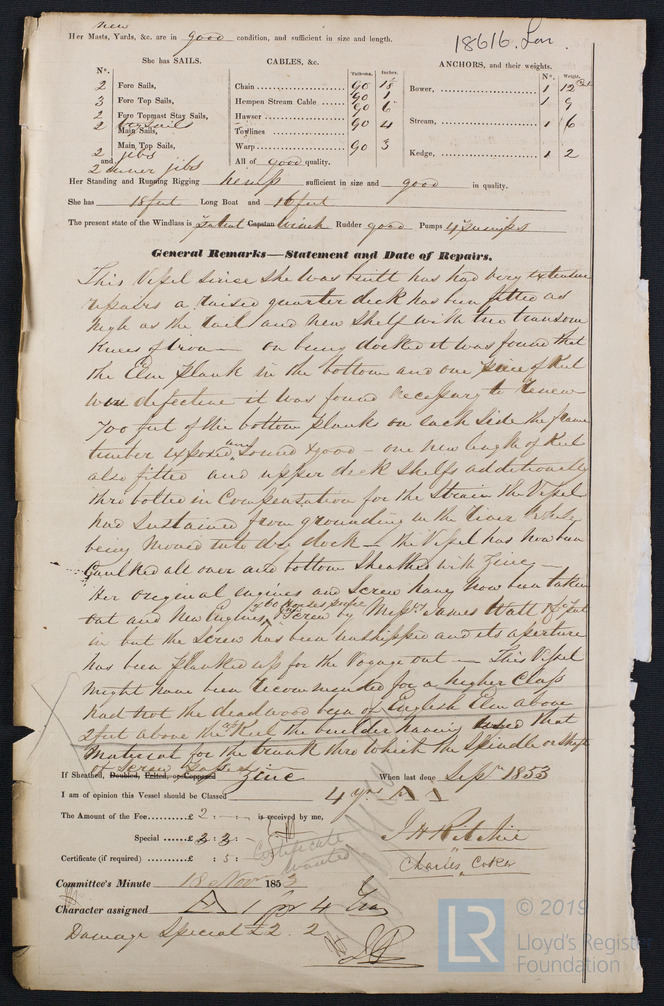 new
Her Masts, Yards, &c. are in good condition, and sufficient in size and length.
18616. Lon.
She has SAILS.
CABLES, &c.
ANCHORS, and their weights.
N°.
Fathoms. Inches.
N°. Weight.
2 Fore Sails,
3 Fore Top Sails,
2 Fore Topmast Stay Sails,
2 Main Sails,
Main Top Sails,
2 jibs
and
2 inner jibs
Chain 90 18
Hempen Stream Cable 90
Hawser 90 6
Towlines 90 4
Warp 90 3
All of good quality.
Bower, 1 12
1 9
Stream, 1 6
Kedge, 1 2
Her Standing and Running Rigging hemp sufficient in size and good in quality.
She has 18 feet Long Boat and 16 feet
The present state of the Windlass is Patent Capstan Winch Rudder good Pumps 4
General Remarks—Statement and Date of Repairs.
This Vessel since she was built has had very extensive
repairs a raised quarter deck has been fitted as
high as the rail and new shelf with two transom
Knees of Iron — on being docked it was found that
the Elm Plank in the bottom and one piece of Keel
were defective it was found necessary to renew
700 feet of the bottom plank on each side the frame
timber exposed and sound & good — one new length of Keel
also fitted and upper deck shelfs additionally
thro bolted in Compensation for the Strain the Vessel
had Sustained from grounding in the river while
being moved into dry dock — the Vessel has now been
Caulked all over and bottom Sheathed with Zinc —
Her original engines and Screw having now been taken
out and New Engines of 60 Horses power & Screw by Messrs James Watt & Co put
in but the Screw has been unshipped and its aperture
has been planked up for the Voyage out — This Vessel
might have been recommended for a higher Class
had not the deadwood been of English Elm above
2 feet above the Keel the builder having used that
material for the trunk thro which the Spindle or Shaft
of Screw passes
If Sheathed, Doubled, Felted, or Coppered Zinc When last done Sept. 1853
I am of opinion this Vessel should be Classed 4 yrs A 1
The Amount of the Fee......£ 2 : - : - is received by me,
Special ......£ 2 : 2 : -
Certificate (if required) ......£ : 5 :
Certificate
wanted
J H Ritchie
Charles Coker
Committee's Minute 18 Novr 1853
Character assigned A 1 for 4 Years
Damage Special £2. 2
LR
© 2019
Lloyd's Register
Foundation